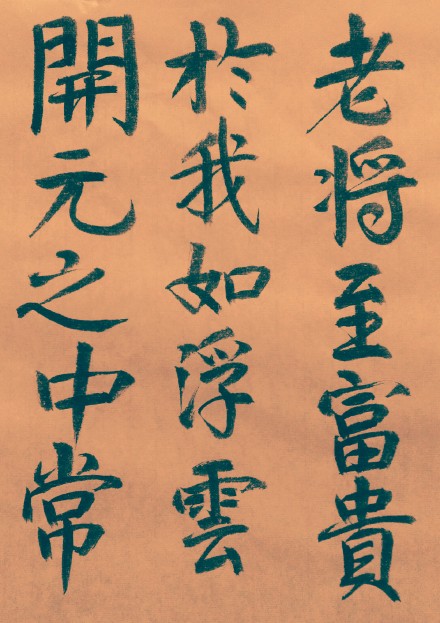 老将至富貴
於我如浮雲
開元之中常